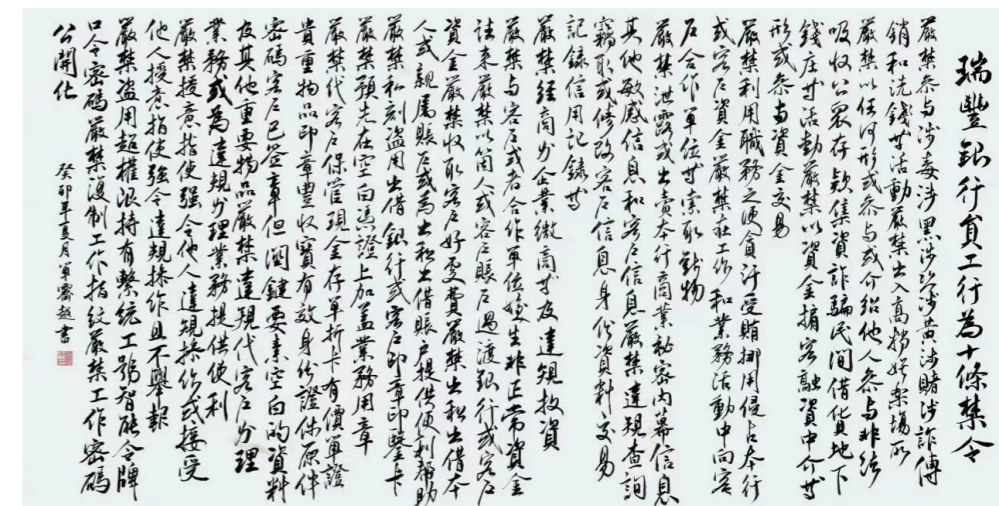 瑞豐銀行員工行為十條禁令
嚴禁参与涉毒涉黑涉恐涉黄涉賭涉詐傳
銷和洗錢等活動嚴禁出入高檔娱樂場所
嚴禁以任何形式参与或介绍他人参与非法
吸收公衆存款集資詐騙民間借貸地下
錢庄等活動嚴禁以資金掮客融資中介等
形式参与資金交易
嚴禁利用職務之便貪汙受賄挪用侵占本行
或客户資金嚴禁在工作和業務活動中向客
户合作單位等索取財物
嚴禁泄露或出賣本行商業秘密内幕信息
其他敏感信息和客户信息嚴禁違規查詢
竊取或修改客户信息身份資料交易
記録信用記録等
嚴禁經商办企業微商等及違規投資
嚴禁与客户或者合作單位發生非正常資金
往来嚴禁以個人或客户賬户過渡銀行或客户
資金嚴禁收取客户好處費嚴禁出租出借本
人或親属賬户或為出租出借賬户提供便利幫助
嚴禁私刻盗用出借銀行或客户印章印鑒卡
嚴禁預先在空白憑證上加蓋業務用章
嚴禁代客户保管現金存單折卡有價單證
貴重物品印章豐收寳有效身份證件原件
密碼客户已簽章但関鍵要素空白的資料
及其他重要物品嚴禁違規代客户办理
業務或為違規办理業務提供便利
嚴禁授意指使强令他人違規操作或接受
他人授意指使强令違規操作且不舉報
嚴禁盗用超權限持有繫統工號智能令牌
口令密碼嚴禁復制工作指紋嚴禁工作密碼
公開化
癸卯年夏月單霽超書